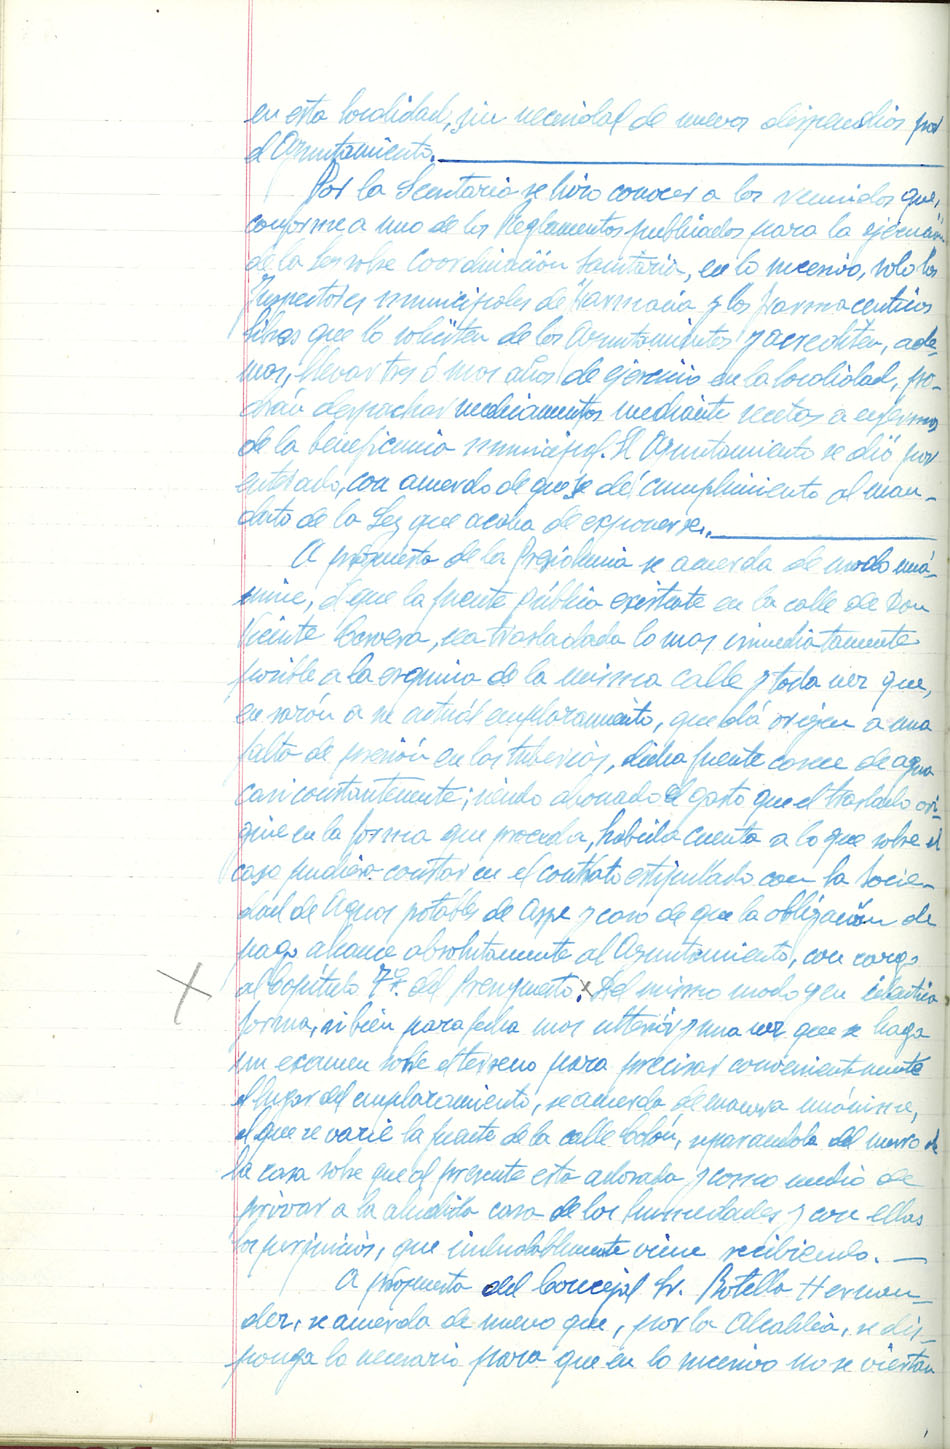 en esta localidad, sin necesidad de nuevos dispendios por
el Ayuntamiento.
Por la Secretaría se hizo conocer a los reunidos que,
conforme a uno de los Reglamentos publicados para la ejecución
de la Ley sobre Coordinación Sanitaria, en lo sucesivo, solo los
Inspectores municipales de Farmacia y los Farmaceuticos
libres que lo soliciten de los Ayuntamientos y acrediten, ade-
mas, llevar tres ó mas años de ejercicio en la localidad, po-
drán despachar medicamentos mediante recetas a enfermos
de la beneficencia municipal. El Ayuntamiento se dió por
enterado, con acuerdo de que se dé cumplimiento al man-
dato de la Ley que acaba de exponerse.
A propuesta de la Presidencia se acuerda de modo uná-
nime, el que la fuente pública existente en la calle de Don
Vicente Cervera, sea trasladada lo mas inmediatamente
posible a la esquina de la misma calle y toda vez que,
en razón a su actual emplazamiento, que dá origen a una
falta de presión en las tuberías, dicha fuente carece de agua
casi constantemente; siendo abonado el gasto que el traslado ori-
gine en la forma que proceda, habida cuenta a lo que sobre el
caso pudiera constar en el contrato estipulado con la Socie-
dad de Aguas potables de Aspe y caso de que la obligación de
pago alcance absolutamente al Ayuntamiento, con cargo
al Capítulo 7º. del Presupuesto. Del mismo modo y en identica
forma, si bien para fecha mas ulterior y una vez que se haga
un examen sobre el terreno para precisar convenientemente
el lugar del emplazamiento, se acuerda de manera unánime,
el que se varíe la fuente de la calle Colón, separandola del muro de
la casa sobre que al presente esta adosada y como medio de
privar a la aludida casa de las humedades y con ellas
los perjuicios, que indudablemente viene recibiendo.
A propuesta del Concejal Sr. Botella Hernan-
dez, se acuerda de nuevo que, por la Alcaldía, se dis-
ponga lo necesario para que en lo sucesivo no se viertan